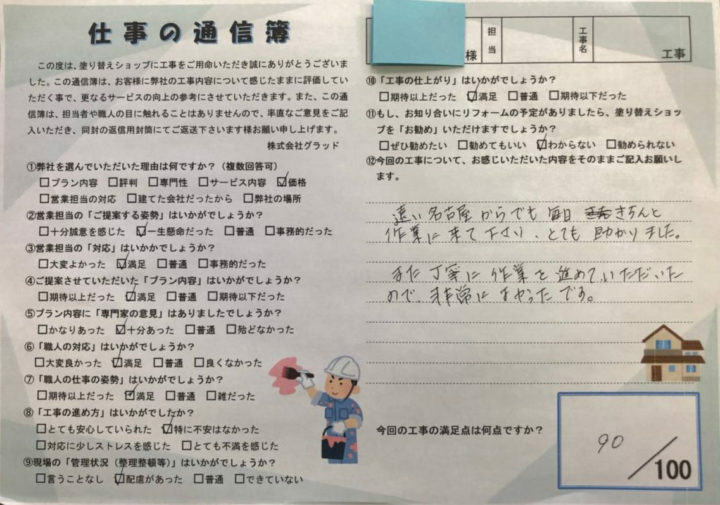 仕事の通信簿
この度は、塗り替えショップに工事をご用命いただき誠にありがとうございま
した。この通信簿は、お客様に弊社の工事内容について感じたままに評価してい
ただく事で、更なるサービスの向上の参考にさせていただきます。また、この通
信簿は、担当者や職人の目に触れることはありませんので、率直なご意見をご記
入いただき、同封の返信用封筒にてご返送下さいます様お願い申し上げます。
株式会社グラッド
①弊社を選んでいただいた理由は何ですか？（複数回答可）
□プラン内容 □評判 □専門性 □サービス内容 ☑価格
□営業担当の対応 □建てた会社だったから □弊社の場所
②営業担当の「ご提案する姿勢」はいかがでしょうか？
□十分誠意を感じた ☑一生懸命だった □普通 □事務的だった
③営業担当の「対応」はいかかでしょうか？
□大変よかった ☑満足 □普通 □事務的だった
④ご提案させていただいた「プラン内容」はいかがでしょうか？
□期待以上だった ☑満足 □普通 □期待以下だった
⑤プラン内容に「専門家の意見」はありましたでしょうか？
□かなりあった ☑十分あった □普通 □殆どなかった
⑥「職人の対応」はいかがでしょうか？
□大変良かった ☑満足 □普通 □良くなかった
⑦「職人の仕事の姿勢」はいかがでしょうか？
□期待以上だった ☑満足 □普通 □雑だった
⑧「工事の進め方」はいかがでしたか？
□とても安心していられた ☑特に不安はなかった
□対応に少しストレスを感じた □とても不満を感じた
⑨現場の「管理状況（整理整頓等）」はいかがでしょうか？
□言うことなし ☑配慮があった □普通 □できていない
様 担当 工事名 工事
⑩「工事の仕上がり」はいかがでしょうか？
□期待以上だった ☑満足 □普通 □期待以下だった
⑪もし、お知り合いにリフォームの予定がありましたら、塗り替えショッ
プを「お勧め」いただけますでしょうか？
□ぜひ勧めたい □勧めてもいい ☑わからない □勧められない
⑫今回の工事について、お感じいただいた内容をそのままご記入お願いし
ます。
遠い名古屋からでも毎日きちんと
作業に来て下さり、とても助かりました。
また丁寧に作業を進めていただいた
ので、非常によかったです。
今回の工事の満足点は何点ですか？
90/100